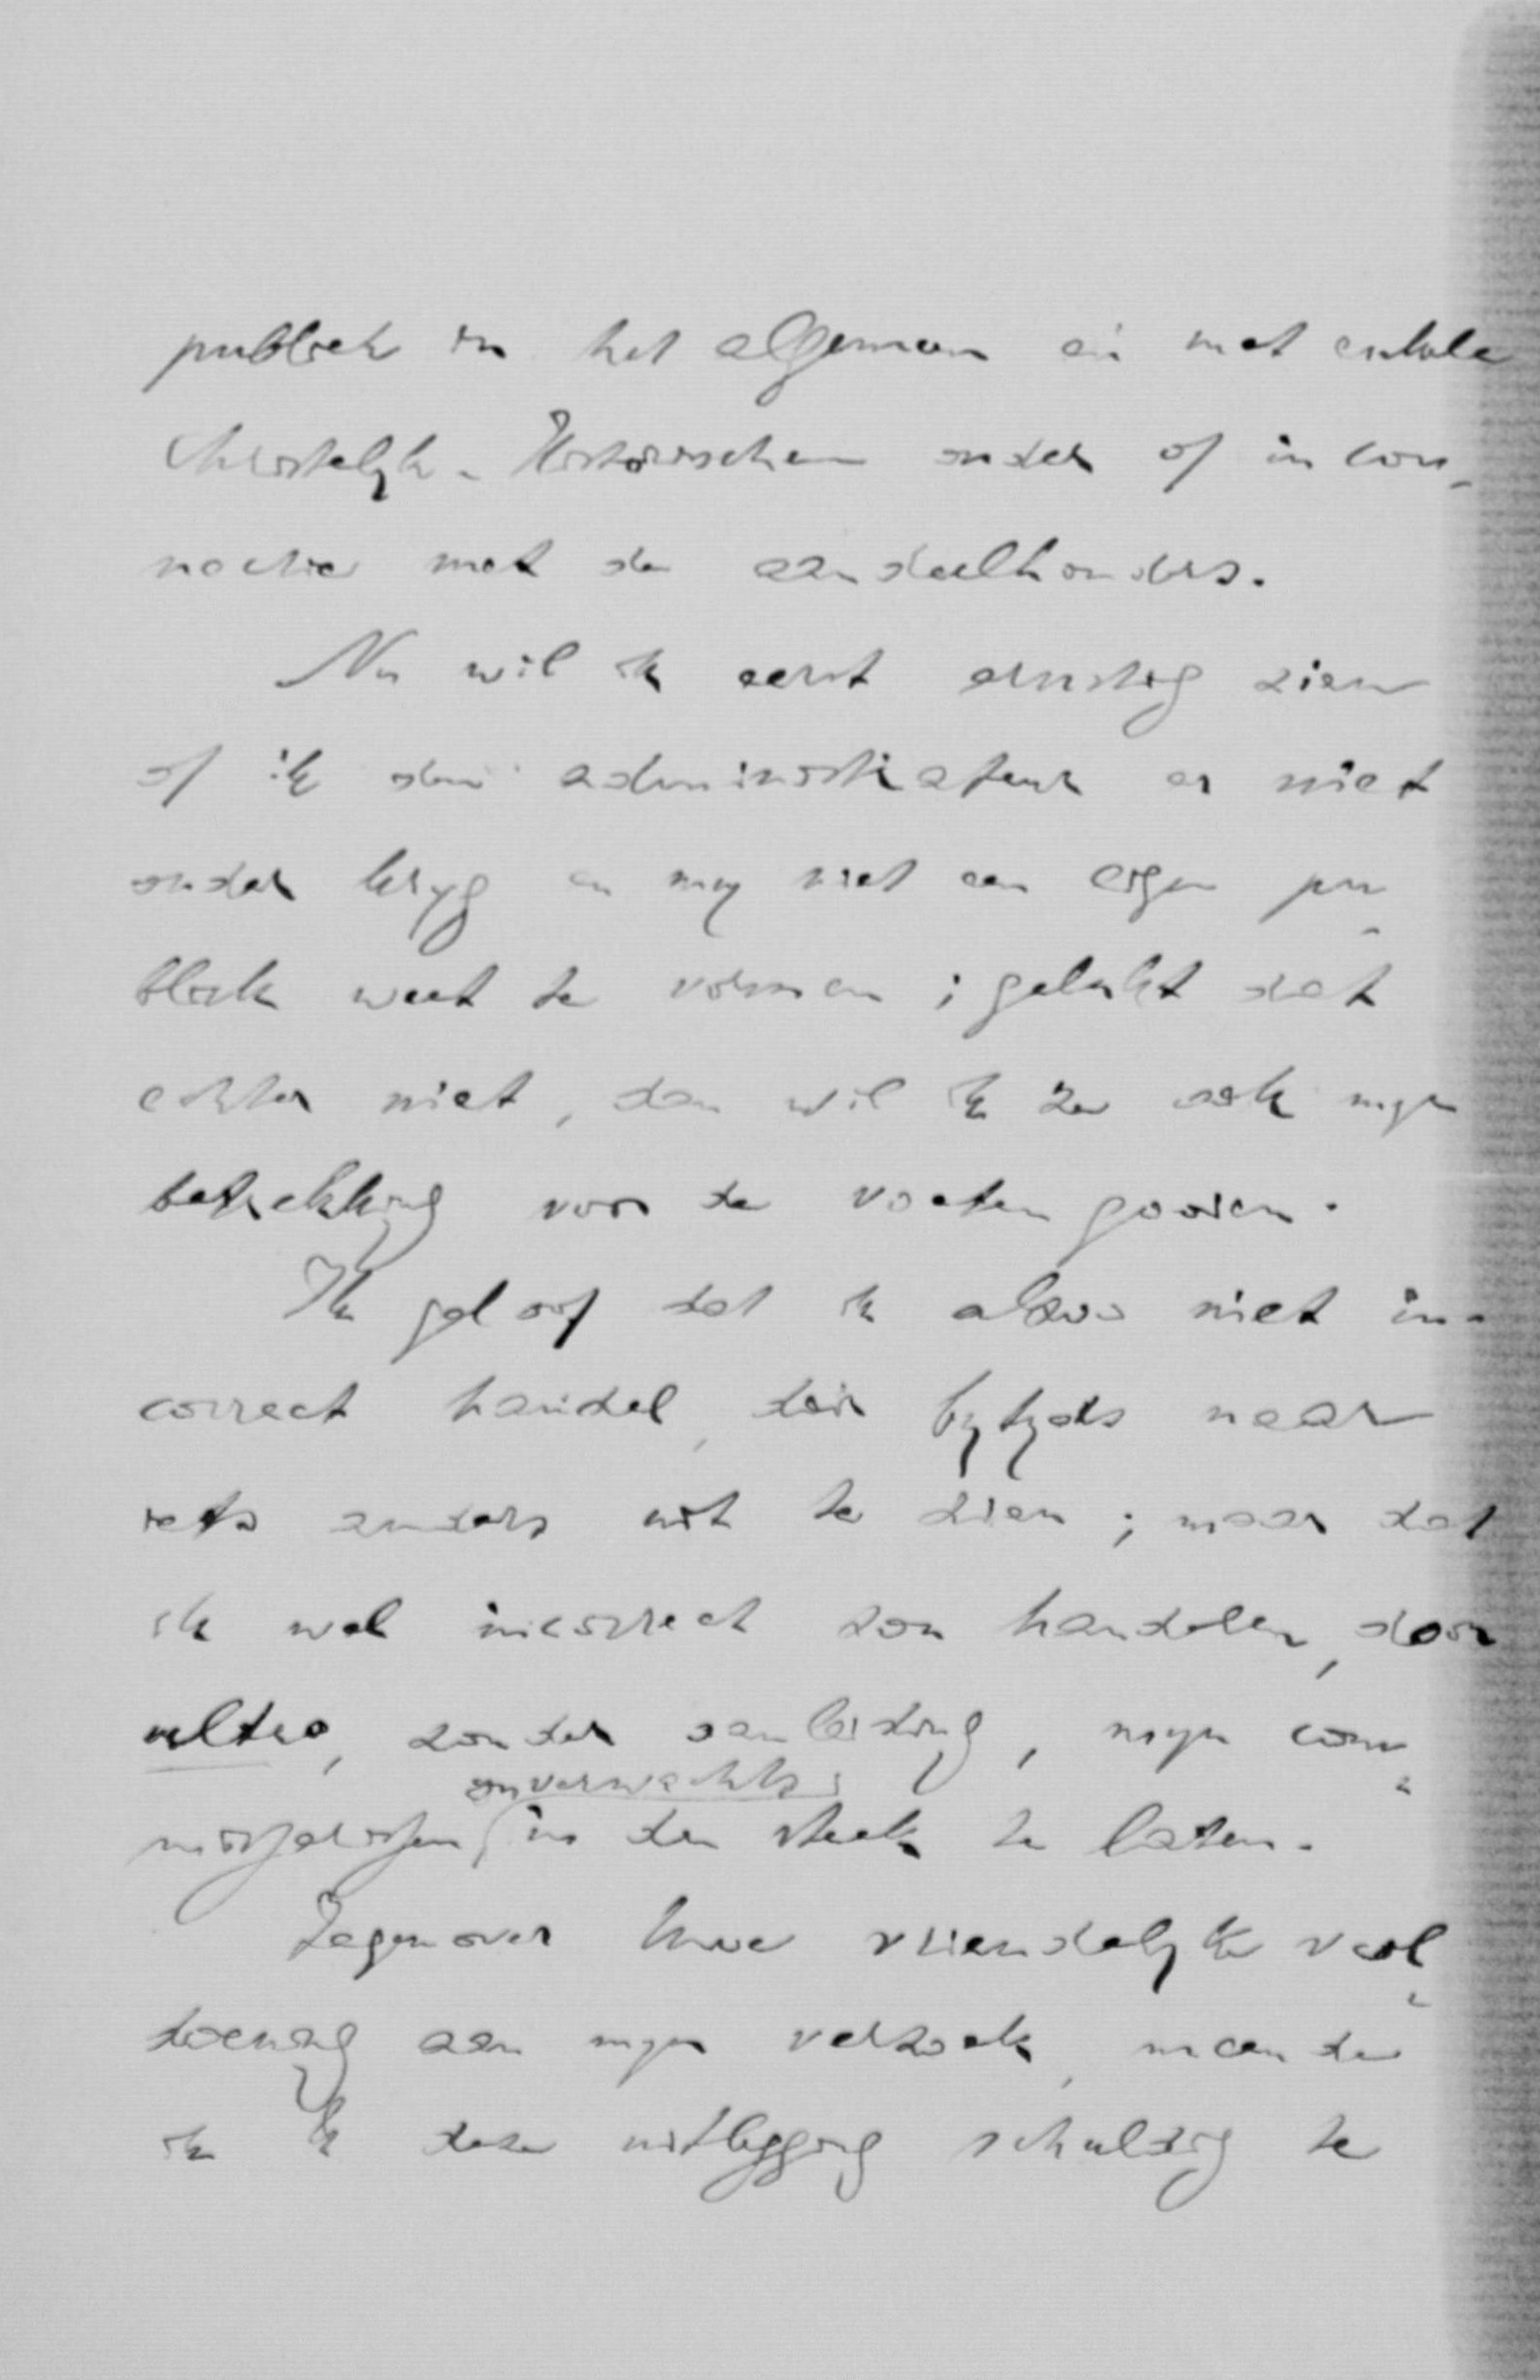 publiek in het algemeen en met enkele
Christelijk-Historischen onder of in con-
nectie met de aandeelhouders.
Nu wil ik eerst ernstig zien
of ik den administrateur er niet
onder krijg en mij niet een eigen pu-
bliek weet te vormen; gelukt dat
echter niet, dan wil ik ze ook mijn
betrekking voor de voeten gooien.
Ik geloof dat ik alzoo niet in-
correct handel, door bijtijds naar
iets anders uit te zien; maar dat
ik wel incorrect zou handelen, door
ultro, zonder aanleiding, mijn com-
onverwachts
missarissen in den steek te laten.
Tegenover Uwe vriendelijke vol-
doening aan mijn verzoek, meende
ik U deze uitlegging schuldig te